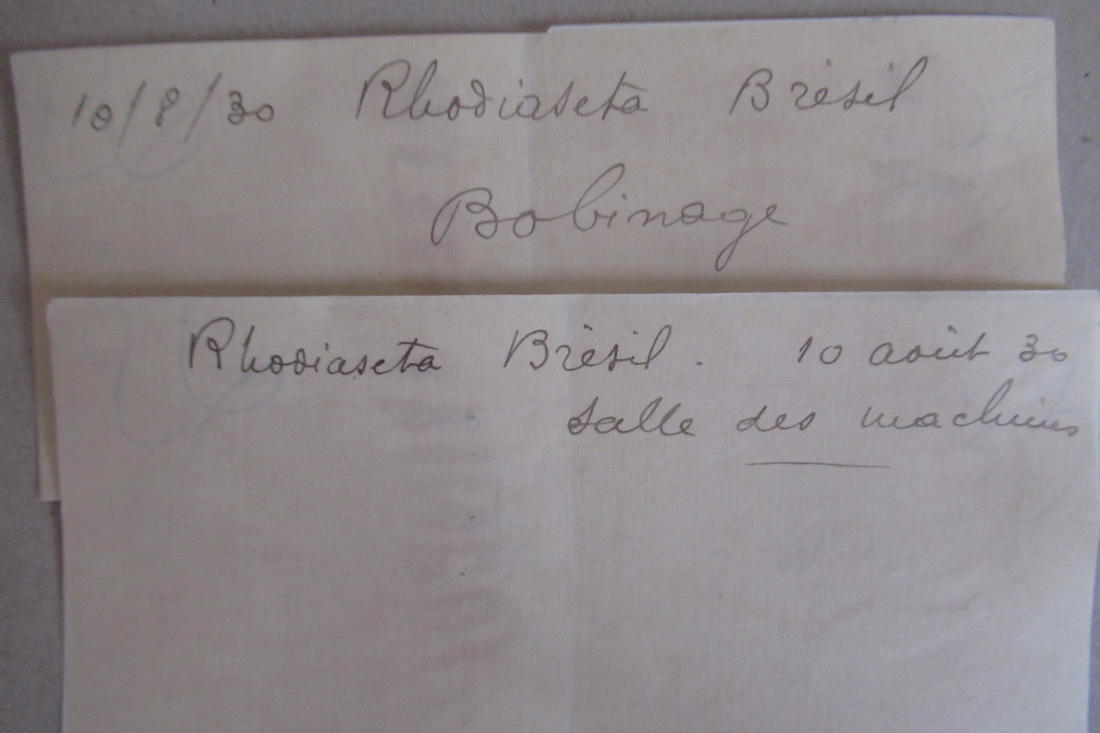 10/8/30 Rhodiaseta Brésil
Bobinage
Rhodiaseta Brésil. 10 août 30
Salle des machines